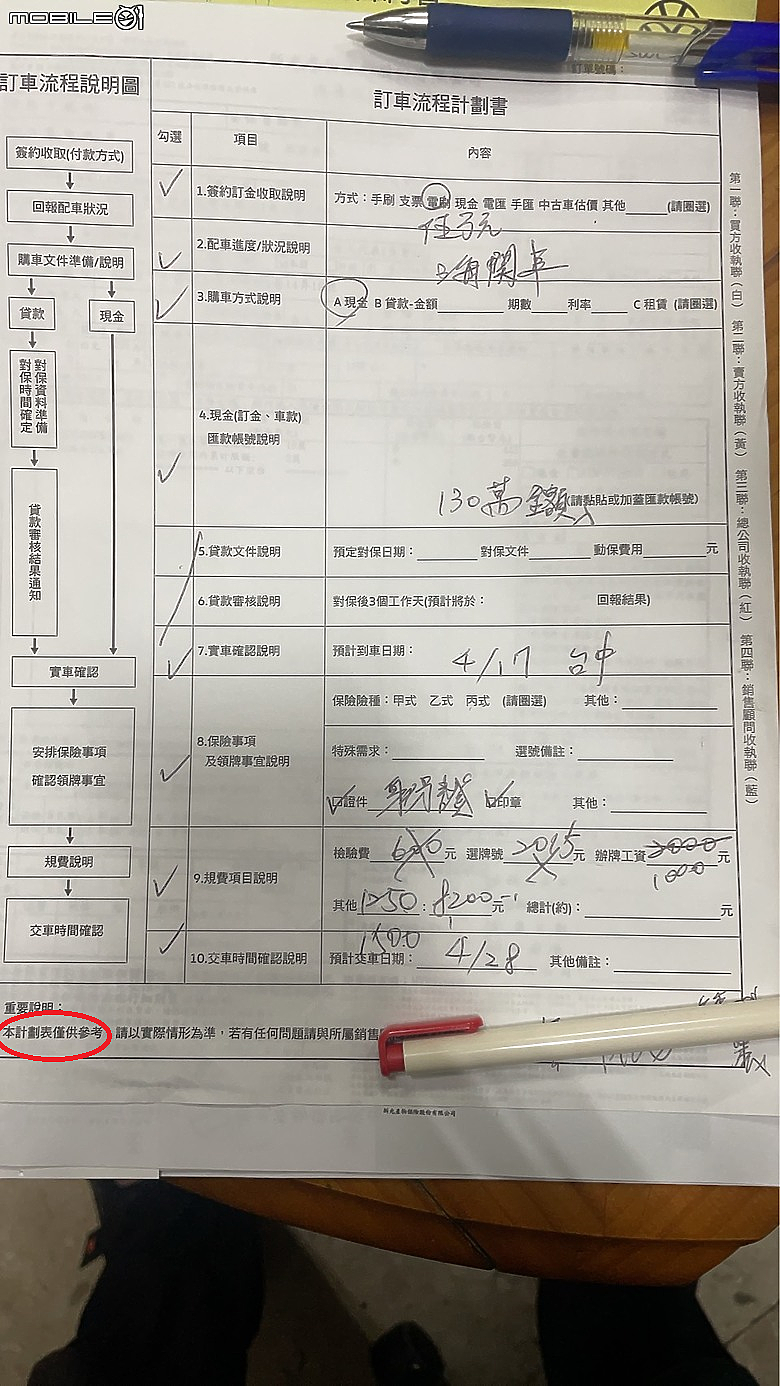 MOBILE01
訂單號碼：
訂車流程說明圖
簽約收取(付款方式)
回報配車狀況
購車文件準備/說明
貸款
現金
對保資料準備
對保時間確定
貸款審核結果通知
實車確認
安排保險事項
確認領牌事宜
規費說明
交車時間確認
訂車流程計劃書
勾選 項目 內容
1.簽約訂金收取說明 方式：手刷 支票 電刷 現金 電匯 手匯 中古車估價 其他 (請圈選)
伍萬元
2.配車進度/狀況說明
已領關車
3.購車方式說明 A 現金 B 貸款-金額 期數 利率 C 租賃 (請圈選)
4.現金(訂金、車款)
匯款帳號說明
130萬 全額 (請黏貼或加蓋匯款帳號)
5.貸款文件說明 預定對保日期： 對保文件 動保費用 元
6.貸款審核說明 對保後3個工作天(預計將於： 回報結果)
7.實車確認說明 預計到車日期： 4/17 台中
8.保險事項
及領牌事宜說明
保險險種：甲式 乙式 丙式 (請圈選) 其他：
特殊需求： 選號備註：
口證件 身份證 口印章 其他：
9.規費項目說明
檢驗費 600 元 選牌號 2015 元 辦牌工資 3000 元
1000
其他 1250 : 8200 元 總計(約)： 元
1500
10.交車時間確認說明 預計交車日期： 4/28 其他備註：
第一聯：買方收執聯(白) 第二聯：賣方收執聯(黃) 第三聯：總公司收執聯(紅) 第四聯：銷售顧問收執聯(藍)
重要說明：
本計劃表僅供參考，請以實際情形為準，若有任何問題請與所屬銷售
新光產物保險股份有限公司